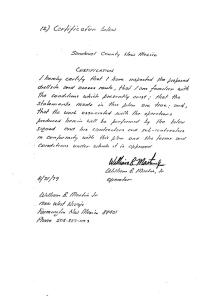 (2) Certification below
Sandoval County New Mexico
CERTIFICATION
I hereby certify that I have inspected the proposed
drillsite and access route, that I am familiar with
the conditions which presently exist; that the
statements made in this plan are true; and,
that the work associated with the operations
proposed herein will be performed by the below
signed and his contractors and sub-contractors
in conformity with this plan and the terms and
conditions under which it is approved
William B. Martin, Jr
Operator
William B. Martin Jr
Farmington New Mexico 87401
Phone